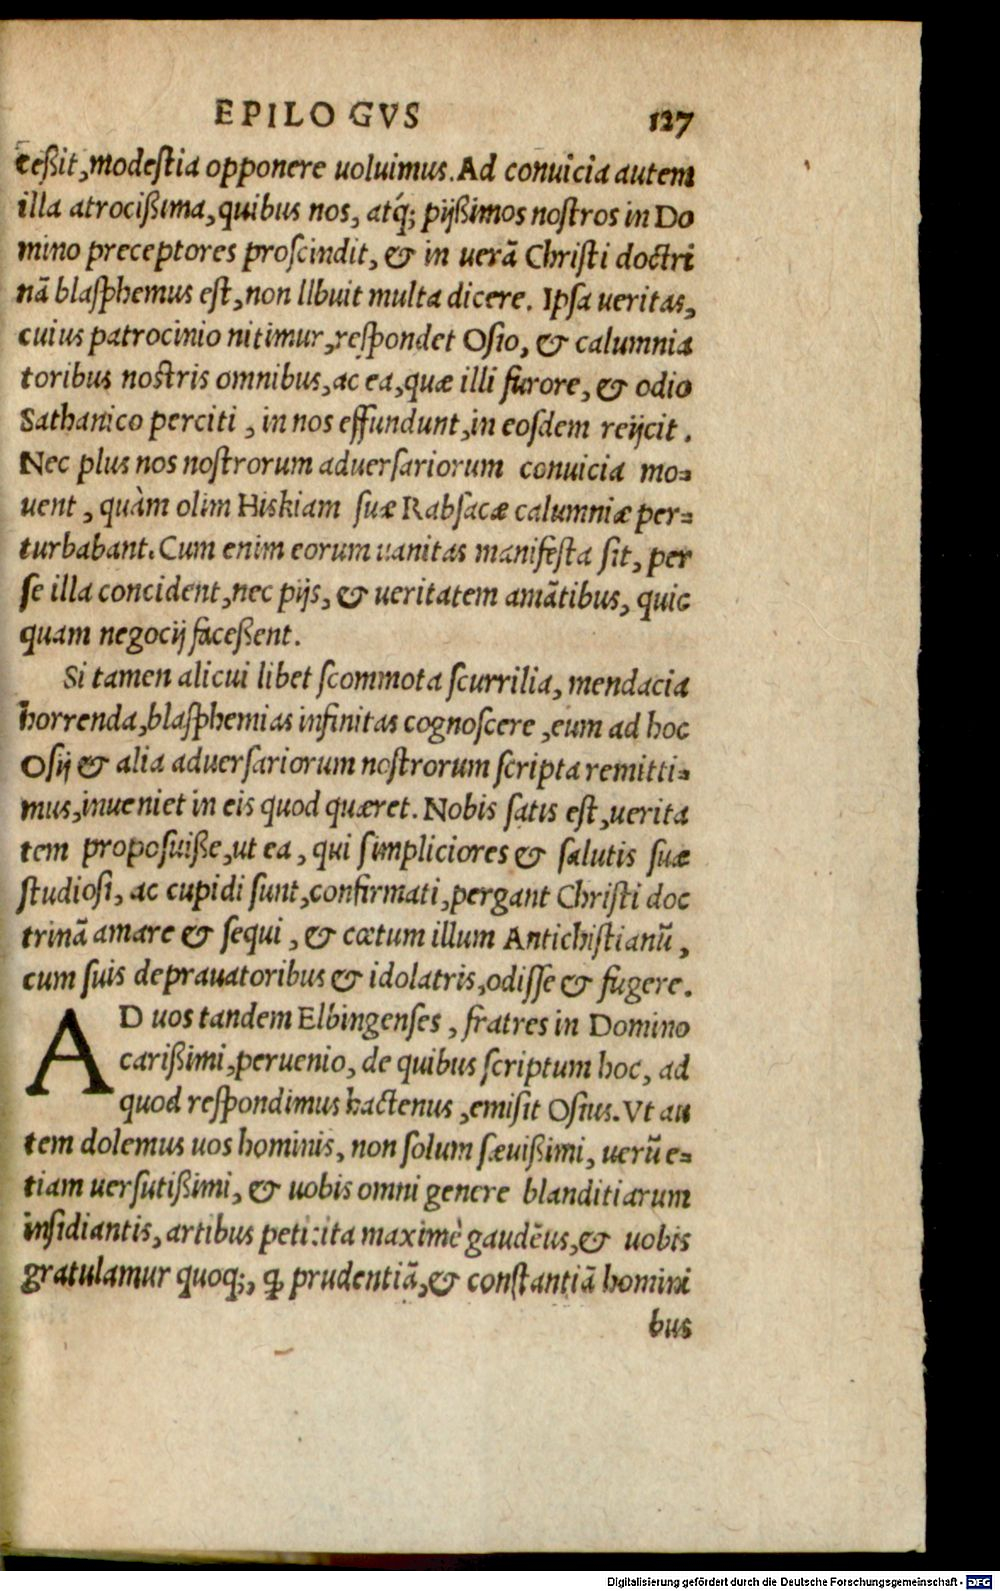 EPILOGVS 127
ceßit, modestia opponere uoluimus. Ad conuicia autem
illa atrocißima, quibus nos, atq́; pijßimos nostros in Do
mino preceptores proscindit, & in uerã Christi doctri
nã blasphemus est, non libuit multa dicere. Ipsa ueritas,
cuius patrocinio nitimur, respondet Osio, & calumnia
toribus nostris omnibus, ac ea, quæ illi furore, & odio
Sathanico perciti, in nos effundunt, in eosdem reijcit.
Nec plus nos nostrorum aduersariorum conuicia mo=
uent, quàm olim Hiskiam suæ Rabsacæ calumniæ per=
turbabant. Cum enim eorum uanitas manifesta sit, per
se illa concident, nec pijs, & ueritatem amãtibus, quic
quam negocij faceßent.
Si tamen alicui libet scommota scurrilia, mendacia
horrenda, blasphemias infinitas cognoscere, eum ad hoc
Osij & alia aduersariorum nostrorum scripta remitti=
mus, inueniet in eis quod quæret. Nobis satis est, uerita
tem proposuiße, ut ea, qui simpliciores & salutis suæ
studiosi, ac cupidi sunt, confirmati, pergant Christi doc
trinã amare & sequi, & cœtum illum Antichistianũ,
cum suis deprauatoribus & idolatris, odisse & fugere.
AD uos tandem Elbingenses, fratres in Domino
carißimi, peruenio, de quibus scriptum hoc, ad
quod respondimus hactenus, emisit Osius. Vt au
tem dolemus uos hominis, non solum sæuißimi, uerũ e=
tiam uersutißimi, & uobis omni genere blanditiarum
insidiantis, artibus peti: ita maximè gaudẽus, & uobis
gratulamur quoq;, ꝙ prudentiã, & constantiã homini
bus
Digitalisierung gefördert durch die Deutsche Forschungsgemeinschaft - DFG